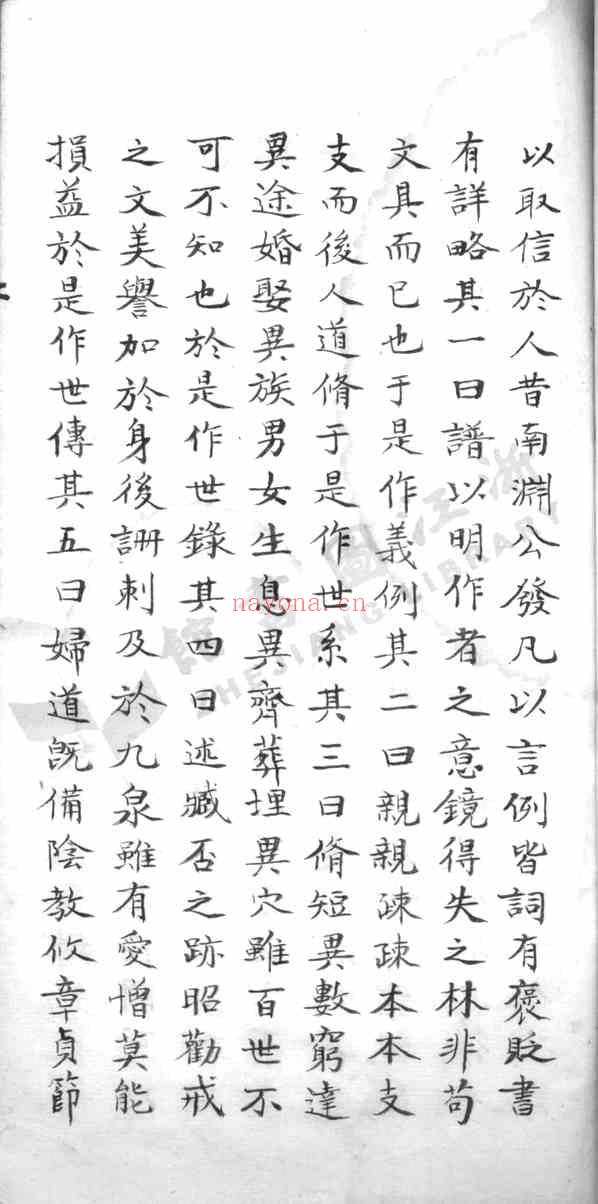 以取信於人昔南淵公發凡以言例皆詞有褒貶書
有詳略其一曰譜以明作者之意鏡得失之林非苟
文具而已也于是作義例其二曰親親疎疎本本支
支而後人道脩于是作世系其三曰脩短異數窮達
異途婚娶異族男女生息異齊葬埋異穴雖百世不
可不知也於是作世錄其四曰述臧否之跡昭勸戒
之文美譽加於身後訕刺及於九泉雖有愛憎莫能
損益於是作世傳其五曰婦道旣備陰教攸章貞節
浙江圖書館
ZHEJIANG LIBRARY
nayona.cn